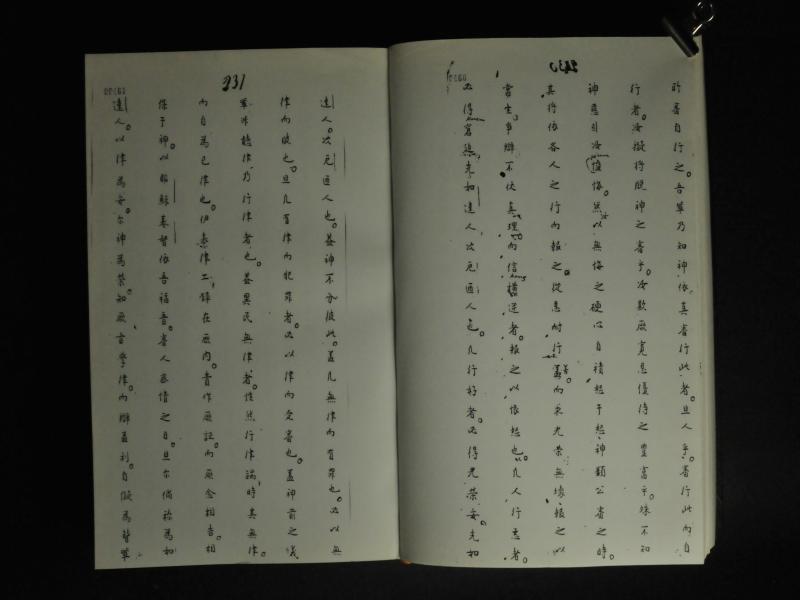 2430
所審自行之。吾輩乃知神依真審行此者。且人乎。審行此而自
行者。汝擬將脫神之審乎。汝欺厥寬忍優待之豐富乎。殊不知
神慈引汝懊悔。然汝以無悔之硬心自積怒于怒神顯公審之時。
其將依各人之行而報之。從恚耐行善而求光榮無壞。報之以
常生。爭辯不伏真理而信橫逆者。報之以懷怒也。凡人行惡者。
必得窘患。先如達人。次厄匝人也。凡行好者。必得光榮安。先如
231
達人。次厄匝人也。蓋神不分彼此。蓋凡無律而有罪也。必以無
律而敗也。且凡有律而犯罪者。必以律而受審也。蓋神前之義
輩非聽律。乃行律者也。蓋異民無律者。性然行律端時。其無律。
而自為己律也。伊律工錄在厥內。責作厥証。而厥念相告。相
保于神。以耶穌基督依吾福音。審人密情之日。且尔倘称為如
達人。以律為安。尔神為榮。知厥旨學律。而辯益利。自儗為瞽輩